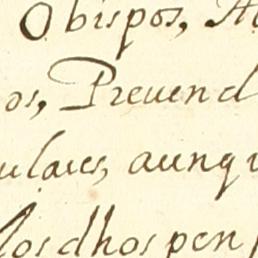 Obispos, A
os, Preuend
ulares, aunqu
los dhos pen